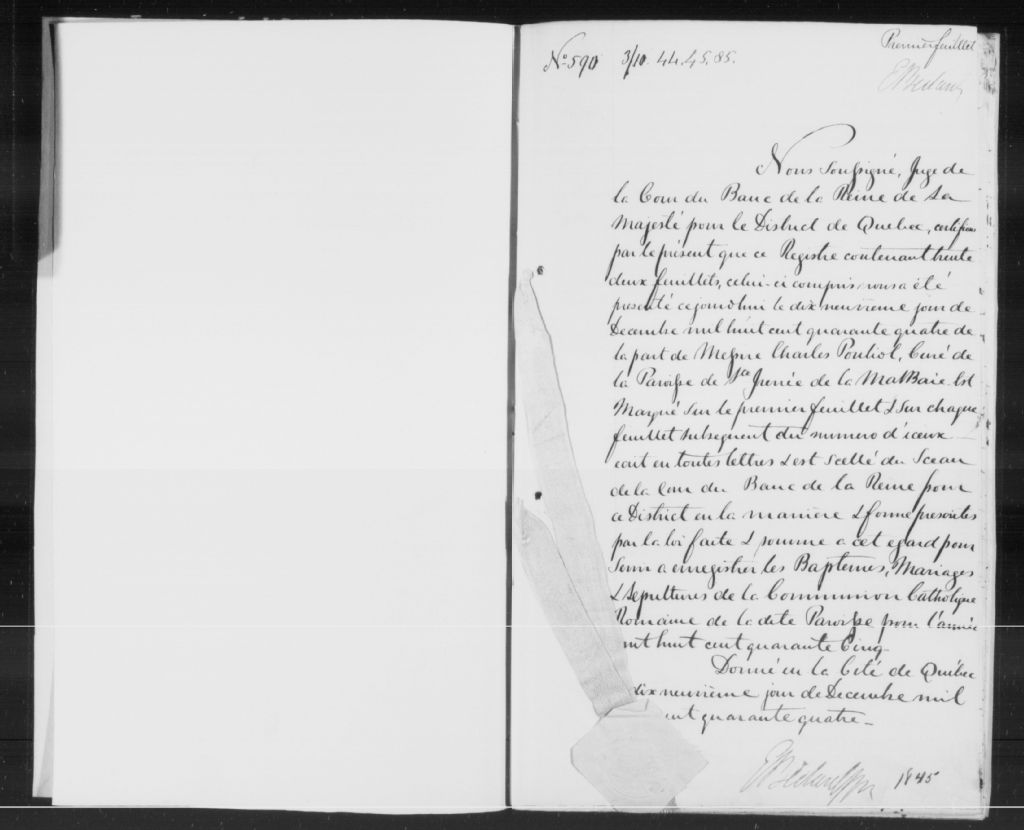 Premier feuillet
No. 590 3/10. 44. 45. 85.
Nous Soussigné, Juge de
la Cour du Banc de la Reine de Sa
Majesté pour le District de Quebec, certifions
par le présent que ce Registre contenant trente
deux feuillets, celui-ci compris nous a été
presenté cejourdhui le dix neuvieme jour de
Decembre mil huit cent quarante quatre de
la part de Messire Charles Pouliot, Curé de
la Paroisse de Ste Irenée de la MalBaie. Est
Marqué sur le premier feuillet & sur chaque
feuillet subsequent du numero d'iceux
ecrit en toutes lettres & est scellé du Sceau
de la Cour du Banc de la Reine pour
ce District en la maniere & forme prescrites
par la loi faite & a cet egard pour
Servir a enregistrer les Baptemes, Mariages
& Sepultures de la Communion Catholique
Romaine de la dite Paroisse pour l'année
mil huit cent quarante Cinq
Donné en la Cité de Québec
dix neuvième jour de Decembre mil
ent quarante quatre –
1845